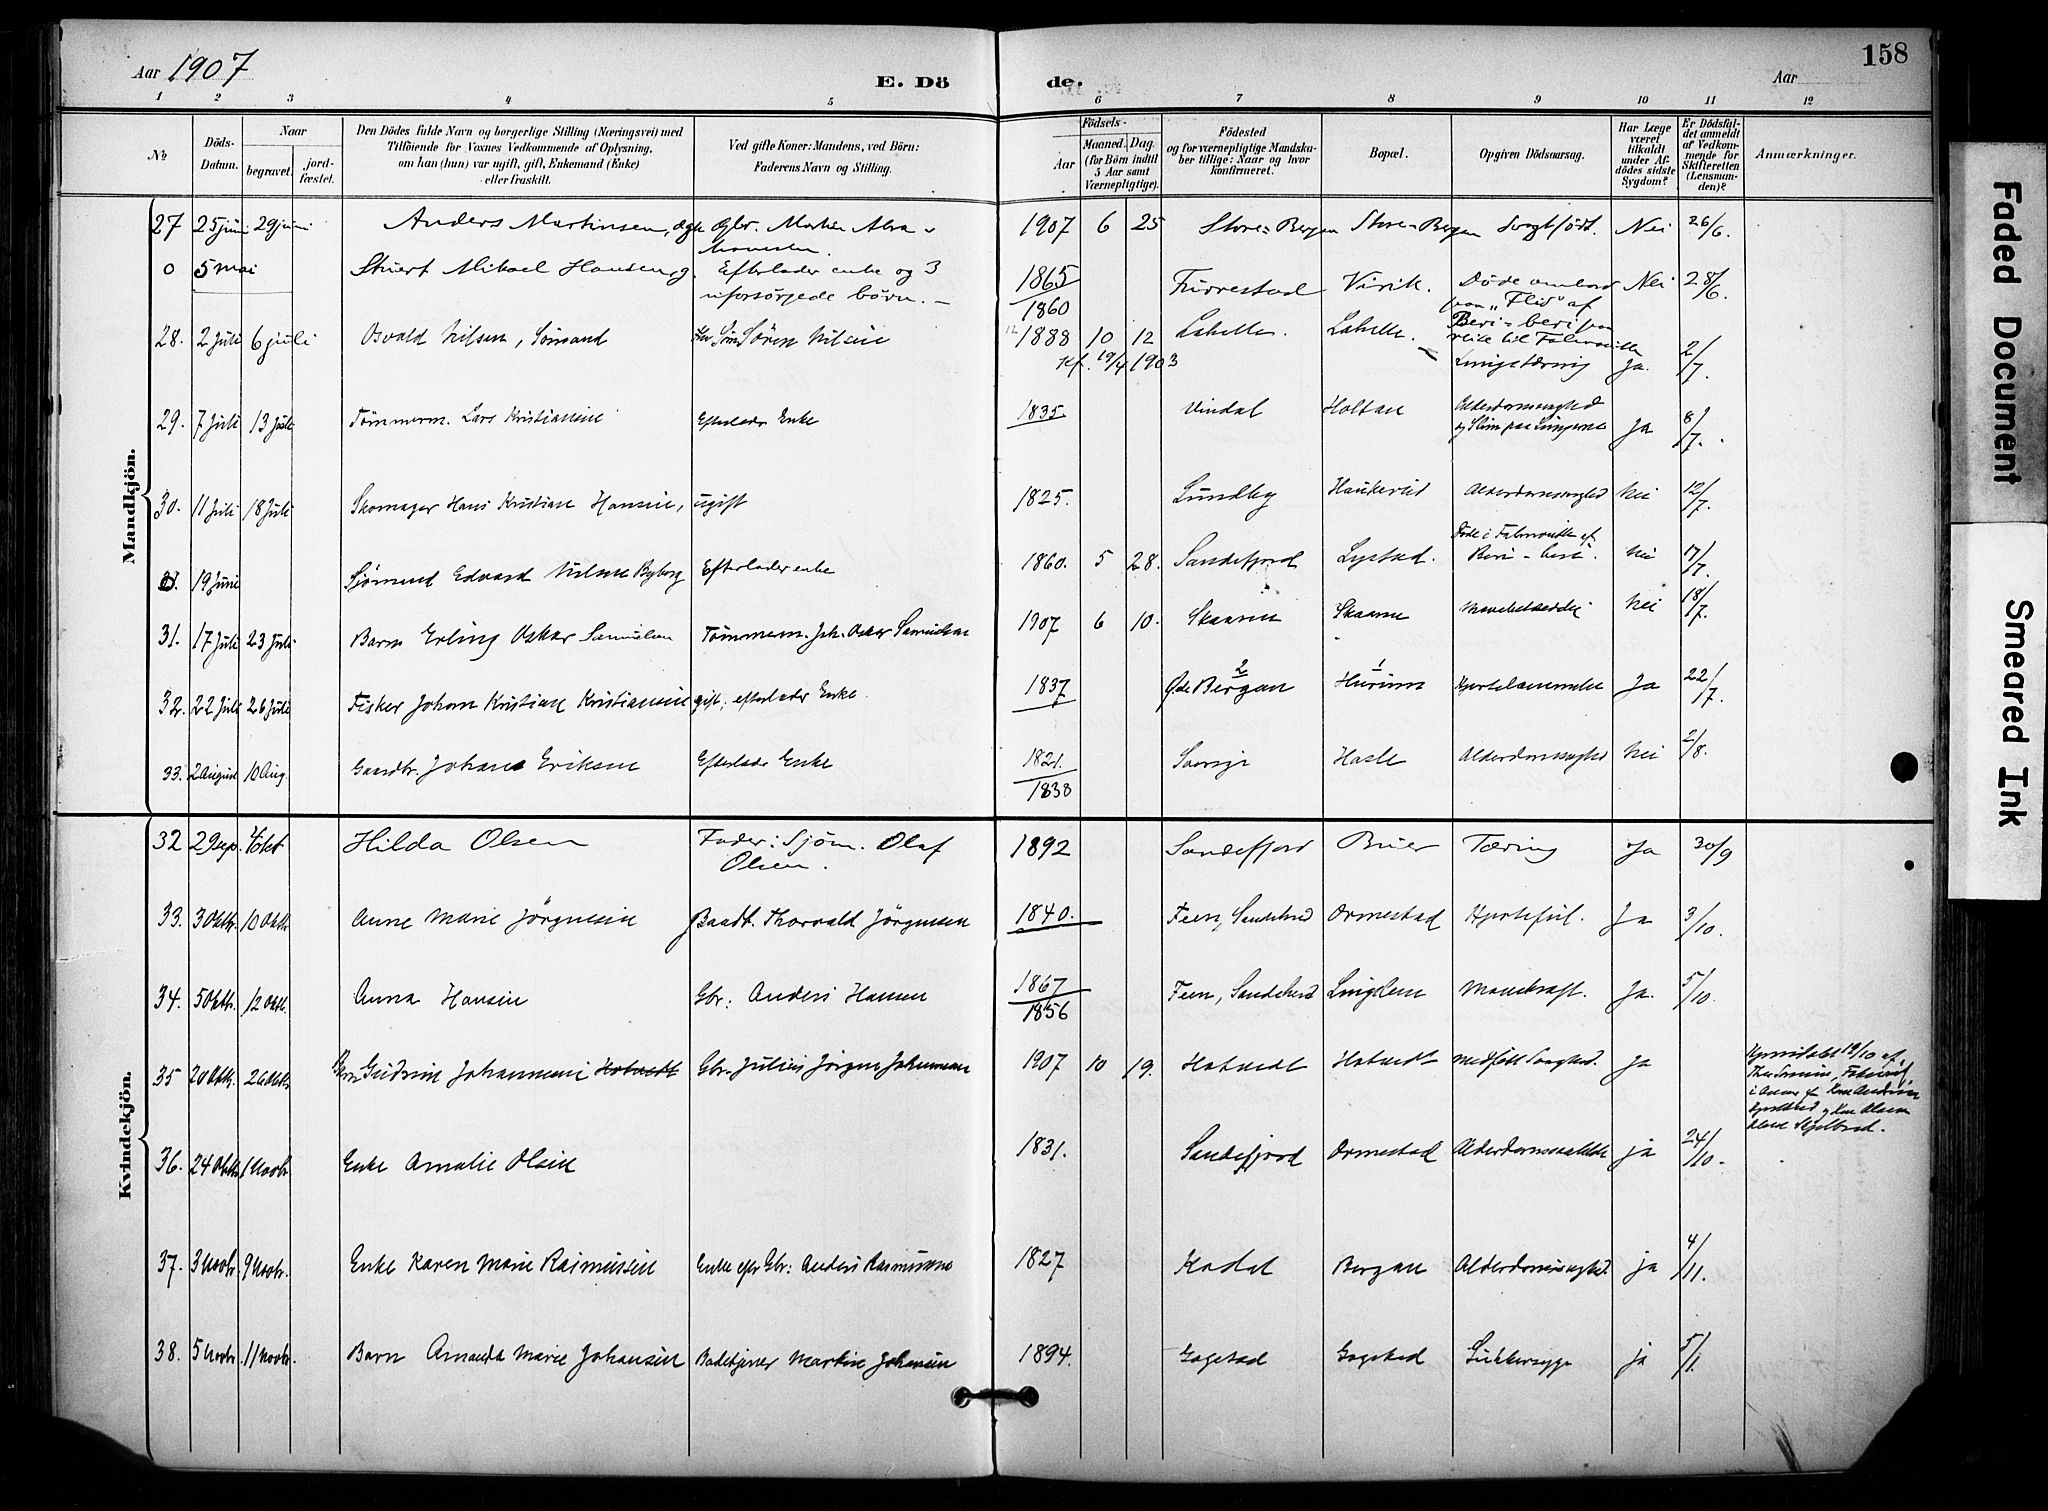 Aar 1907
E. Döde.
Aar
158
1 2 3 4 5 6 7 8 9 10 11 12
No
Döds-Datum.
Naar
begravet.
jord-fæstet.
Den Dödes fulde Navn og borgerlige Stilling (Næringsvei) med
Tilföiende for Voxnes Vedkommende af Oplysning,
om han (hun) var ugift, gift, Enkemand (Enke)
eller fraskilt.
Ved gifte Koner: Mandens, ved Börn:
Faderens Navn og Stilling.
Födsels-
Aar
Maaned. Dag.
(for Börn indtil
5 Aar samt
Værnepligtige).
Födested
og for værnepligtige Mandska-
ber tillige: Naar og hvor
konfirmeret.
Bopæl.
Opgiven Dödsaarsag.
Har Læge
været
tilkaldt
under Af-
dödes sidste
Sygdom?
Er Dödsfal-
det anmeldt
af Vedkom-
mende for
Skifteretten
(Lensman-
den)?
Anmærkninger.
Mandkjön.
27 25 juni 29 juni Anders Martinsen, Gbr. Martin 1907 6 25 Store-Bergan Store-Bergan Svagt født. Nei 26/6.
0 5 mai Stuert Mikael Hansen, g. Efterlader enke og 3 1865 Furrestad Virik. Døde ombord Nei 28/6.
uforsörgede børn. – 1860 paa "Flid" af
Beri-beri paa
reise til Falmouth
28. 2 Juli 6 juli Osvald Nilsen, Sømand Sören Nilsen 1888 10 12 Lahelle. Lahelle. Lungetæring Ja. 2/7.
Kf. 19/4 1903
29. 7 Juli 13 Juli Tømmerm. Lars Kristiansen Efterlader Enke 1835 Vindal Holtan Alderdomssvaghed
og Slim paa Lungerne Ja 8/7.
30. 11 Juli 18 Juli Skomager Hans Kristian Hansen, ugift 1825. Lundby Haukerød Alderdomssvaghed Nei 12/7.
Døde i Falmouth af
0. 19 Juni Sjömand Edvard Nilsen Byberg Efterlader enke 1860. 5 28. Sandefjord Lystad. Beri-beri. Nei 17/7.
31. 17 Juli 23 Juli Barn Erling Oskar Samuelsen Tömmerm. Joh. Oskar Samuelsen 1907 6 10. Skaarne Skaarne Nei 18/7.
32. 22 Juli 26 Juli Fisker Johan Kristian Kristiansen gift, efterlader Enke. 1837 Øde Bergan 2 Hurum 1 Hjertelammelse Ja 22/7.
33. 2 August 10 Aug. Gaardbr. Johans Eriksen Efterlader Enke 1821. Hasle Alderdomssvaghed Nei 2/8.
1838
Kvindekjön.
32 29 sep. 4 okt Hilda Olsen Fader: Sjöm. Olaf
Olsen. 1892 Sandefjord Bruer Tæring Ja 30/9
33. 3 Oktbr. 10 Oktbr Anne Marie Jörgensen Baadt. Thorvald Jörgensen 1840. Feen, Sandeherred Ormestad Hjertefeil. Ja 3/10.
34. 5 Oktbr. 12 Oktbr. Anna Hansen Gbr: Anders Hansen 1867 Feen, Sandeherred Lingelem Mavekræft. Ja. 5/10.
1856
35 20 Oktbr. 26 Oktbr Barn Gudrun Johannesen Hotvedt Gbr. Julius Jörgen Johannesen 1907 10 19. Hotvedt Hotvedt Medfødt Svaghed. Ja Hjemmedøbt 19/10 af
36. 24 Oktbr 1 Novbr. Enke Amalie Olsen 1831. Sandefjord Ormestad Alderdomssvakhet ja 24/10.
37. 3 Novbr. 9 Novbr. Enke Karen Marie Rasmussen Enke efter Gbr: Anders Rasmussen 1827 Bergan Alderdomssvaghed. ja 4/11.
38. 5 Novbr. 11 Novbr. Barn Amanda Marie Johansen Badetjener Martin Johansen 1894. Gogstad Gogstad Sukkersyge ja 5/1.
Faded Document
Smeared Ink